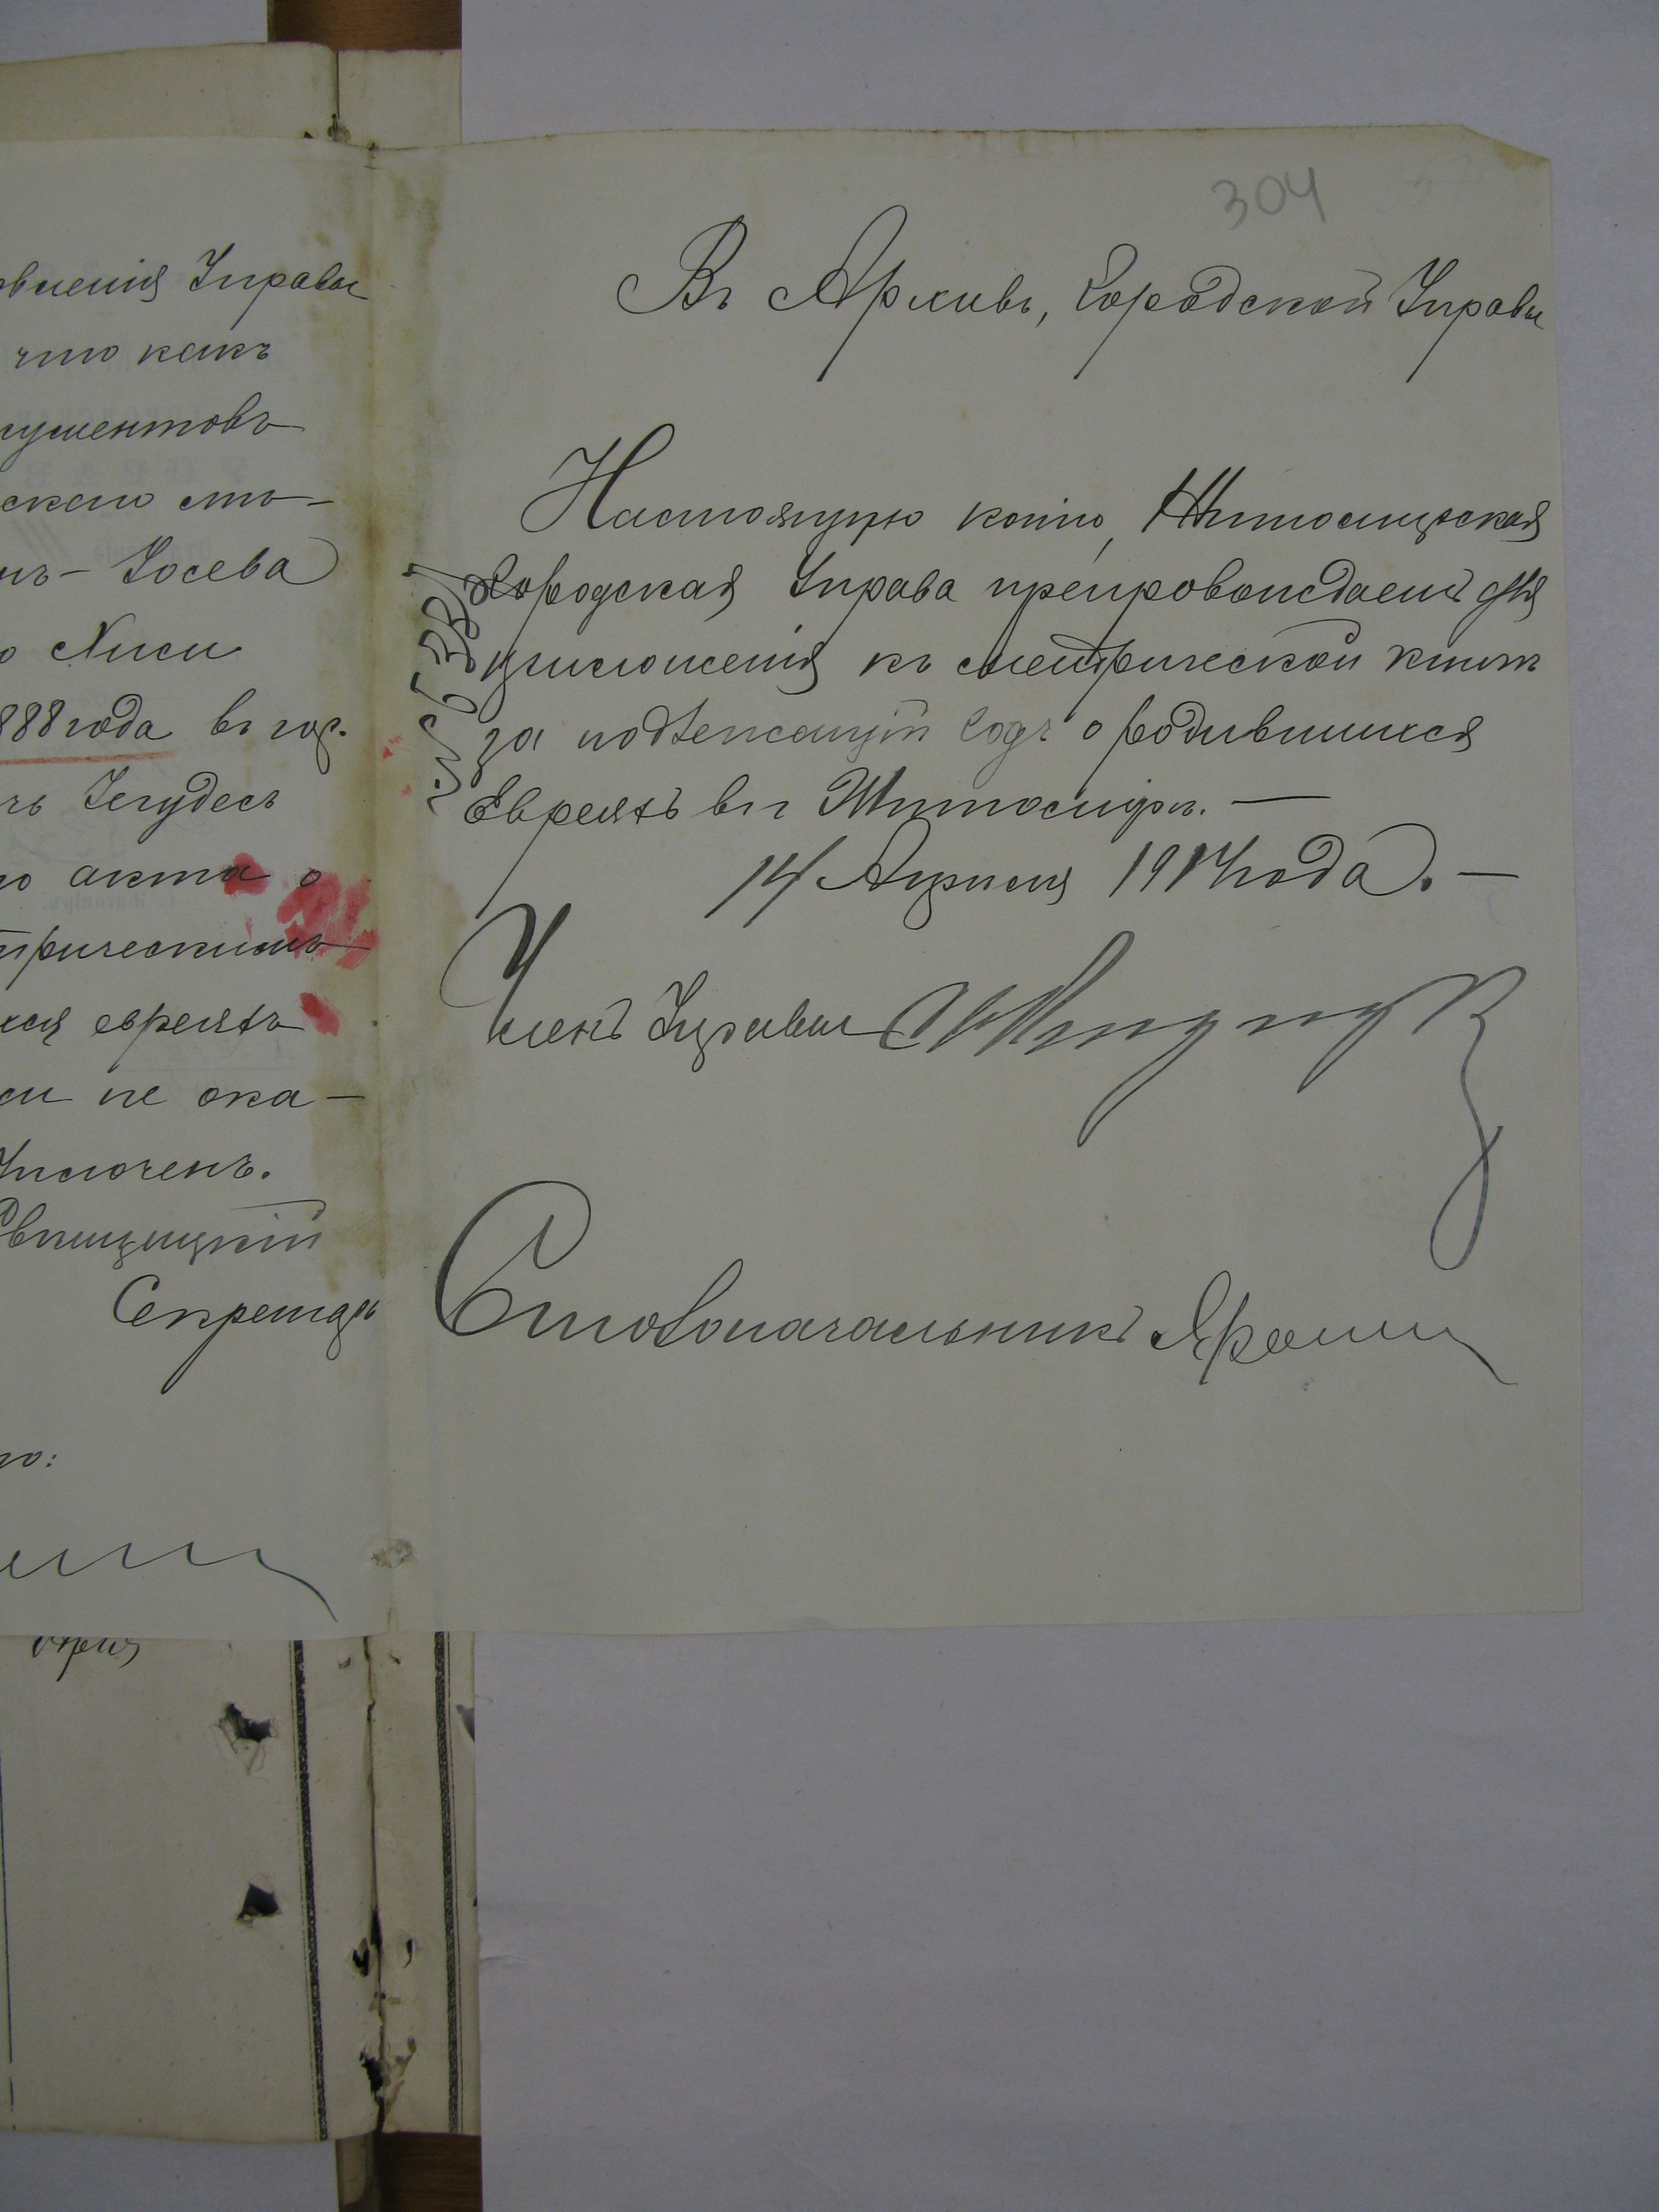 304
вленія Управы
что какъ
ументовъ
скаго мѣ-
нъ-Іосева
о Хиси
888 года въ гор.
ъ Іегудесъ
о акта о
трическимъ
хся евреяхъ
си не ока-
Секретарь
го:
Въ Архивъ, Городской Управы
Настоящую копію, Житомирская
Городская Управа препровождаетъ для
приложенія къ метрической книгѣ
за подлежащій годъ о родившихся
Евреяхъ в г Житомирѣ. —
14 Апрѣля 1914 года. —
Членъ Управы
Столоначальникъ
№ 6381